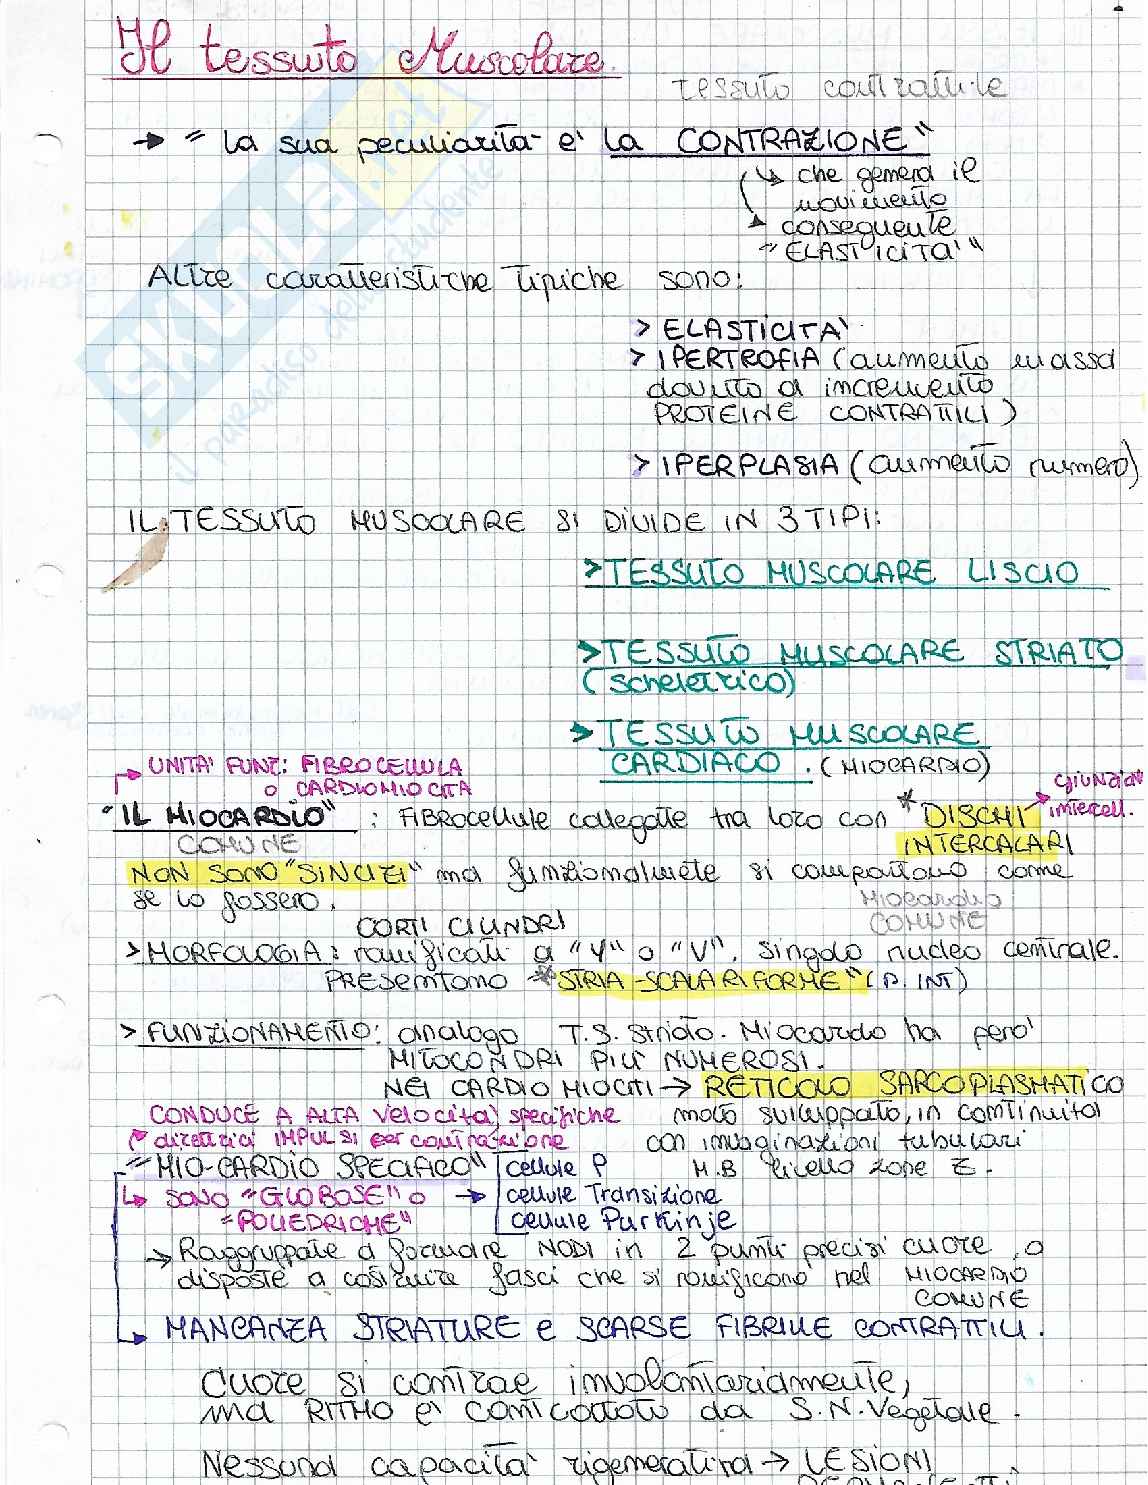 Il tessuto Muscolare
tessuto contrattile
→ "la sua peculiarità è la CONTRAZIONE"
↳ che genera il
movimento
conseguente
"ELASTICITA'"
Altre caratteristiche tipiche sono:
> ELASTICITA'
> IPERTROFIA (aumento massa
dovuto a incremento
PROTEINE CONTRATTILI)
> IPERPLASIA (aumento numero)
IL TESSUTO MUSCOLARE SI DIVIDE IN 3 TIPI:
> TESSUTO MUSCOLARE LISCIO
> TESSUTO MUSCOLARE STRIATO
(scheletrico)
> TESSUTO MUSCOLARE
CARDIACO. (MIOCARDIO)
UNITA' FUNZ: FIBROCELLULA
O CARDIOMIOCITA
"IL MIOCARDIO": FIBROCELLULE collegate tra loro con * DISCHI → giunzioni
intercell.
COMUNE
INTERCALARI
NON SONO "SINCIZI" ma funzionalmete si comportano come
se lo fossero.
Miocardio
COMUNE
CORTI CILINDRI
> MORFOLOGIA: ramificati a "Y" o "V". Singolo nucleo centrale.
PRESENTANO * "STRIA-SCALARIFORME" (D. INT)
> FUNZIONAMENTO: analogo T.S. Striato. Miocardo ha però
MITOCONDRI PIU' NUMEROSI.
NEI CARDIOMIOCITI → RETICOLO SARCOPLASMATICO
molto sviluppato, in continuità
con invaginazioni tubulari
M.B livello zone Z.
CONDUCE A ALTA velocità, specifiche
direzioni IMPULSI per contrazione
"MIO-CARDIO SPECIFICO"
cellule P
↳ SONO "GLOBOSE" O → cellule Transizione
"POLIEDRICHE"
cellule Purkinje
→ Raggruppate a formare NODI in 2 punti precisi cuore, o
disposte a costruire fasci che si ramificano nel MIOCARDIO
COMUNE
↳ MANCANZA STRIATURE e SCARSE FIBRILLE CONTRATTILI.
Cuore si contrae involontariamente,
ma RITMO è controllato da S.N. Vegetale.
Nessuna capacità rigenerativa → LESIONI
SKUOLA.net
il paradiso dello studente